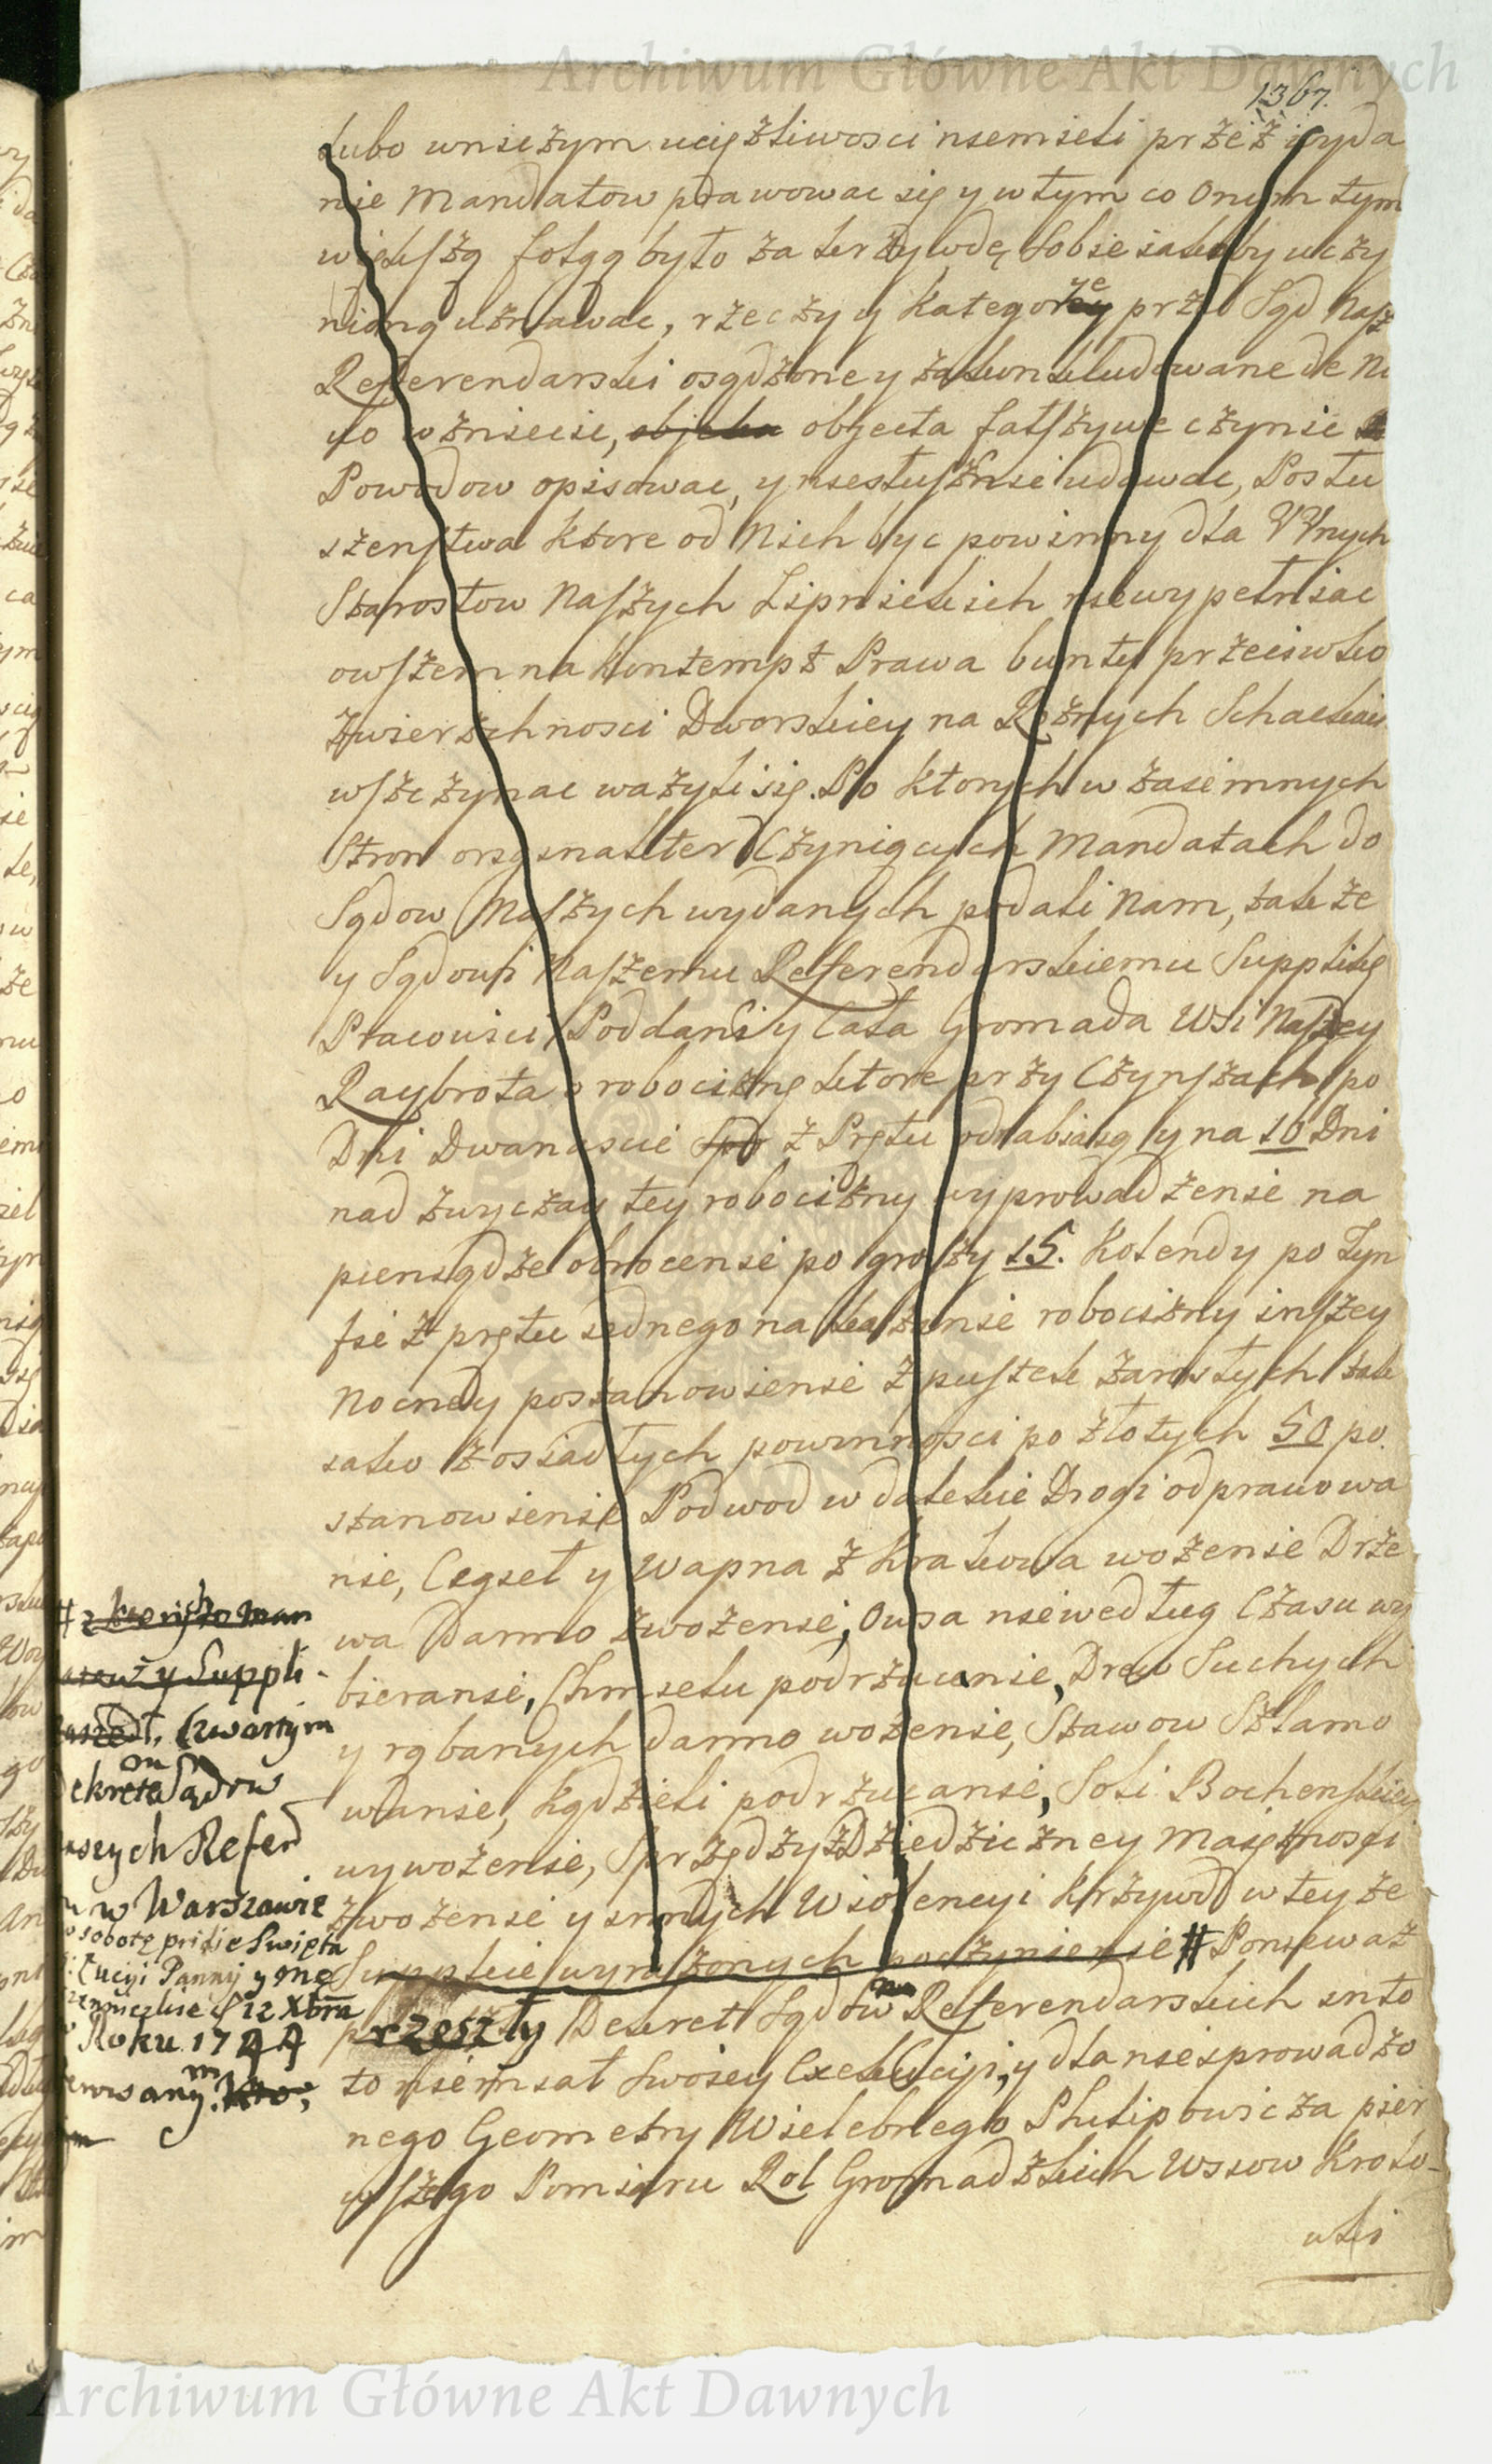 Archiwum Główne Akt Dawnych
1367.
Lubo wniczym uciążliwosci niemieli przez wyda
nie Mandatow prawowac się y w tym co Onym tym
większą folgą było za krzywdę sobie iakoby uczy
nioną uznawac, rzeczy y kategorye przed Sąd Nasz
Referendarski osądzone y zakonkludowane de No
vo wzniecic, objecta fałszywe czynic
Powodow opisowac, y niesłusznie udawac, Posłu
szenstwa ktore od Nich byc powinny dla WWnych
Starostow Naszych Lipnickich niewypełniac
owszem na kontempt Prawa bunty przeciwko
Zwierzchnosci Dworskiey na Roznych Schackach
wszczynac wazyli się. Po ktorych wzaiemnych
Stron oryginaliter Czyniących Mandatach do
Sądow Naszych wydanych podali Nam, takze
y Sądowi Naszemu Referendarskiemu Supplikę
Pracowici Poddani y Cała Gromada Wsi Naszey
Raybrota o robociznę ktore przy Czynszach po
Dni Dwanascie z Prętu odrabiaią y na 10 Dni
nad zwyczay tey robocizny wyprowadzenie na
pieniądze obrocenie po groszy 15. Kolendy po Tyn
fie z prętu iednego na kazanie robocizny inszey
Nocney postanowienie z pustek zarosłych tak
iako z osiadłych powinnosci po złotych 50 po
stanowienie Podwod w dalekie Drogi odprawowa
nie, Cegieł y Wapna z Krakowa wozenie Drze
wa Darmo zwozenie, Owsa niewedług Czasu wy
bieranie, Chmielu podrzucanie, Drew Suchych
y rąbanych darmo wozenie, Stawow Szlamo
wanie, Kądzieli podrzucanie, Soli Bochenskiey
wywozenie, Sprzędzy z Dziedziczney Maiętnosci
zwozenie y innych Wiolencyi krzywd w teyze
Supplice wyrazonych poczynienie # Poniewaz
przeszły Dekret Sądow Referendarskich into
to niemiał swoiey Exekucyi, y dla niesprowadzo
nego Geometry Wielebnego Philipowicza pier
wszego Pomiaru Rol Gromadzkich Wsiow Krolo-
wki
# z
y Suppli-
Czwartym
ekretem Sądow
aszych Referd
w Warszawie
sobotę pridie Swięta
Łucyi Panny y mę
zenniczkie d 12 Xbra
Roku 1744
ferowanym.
Archiwum Główne Akt Dawnych